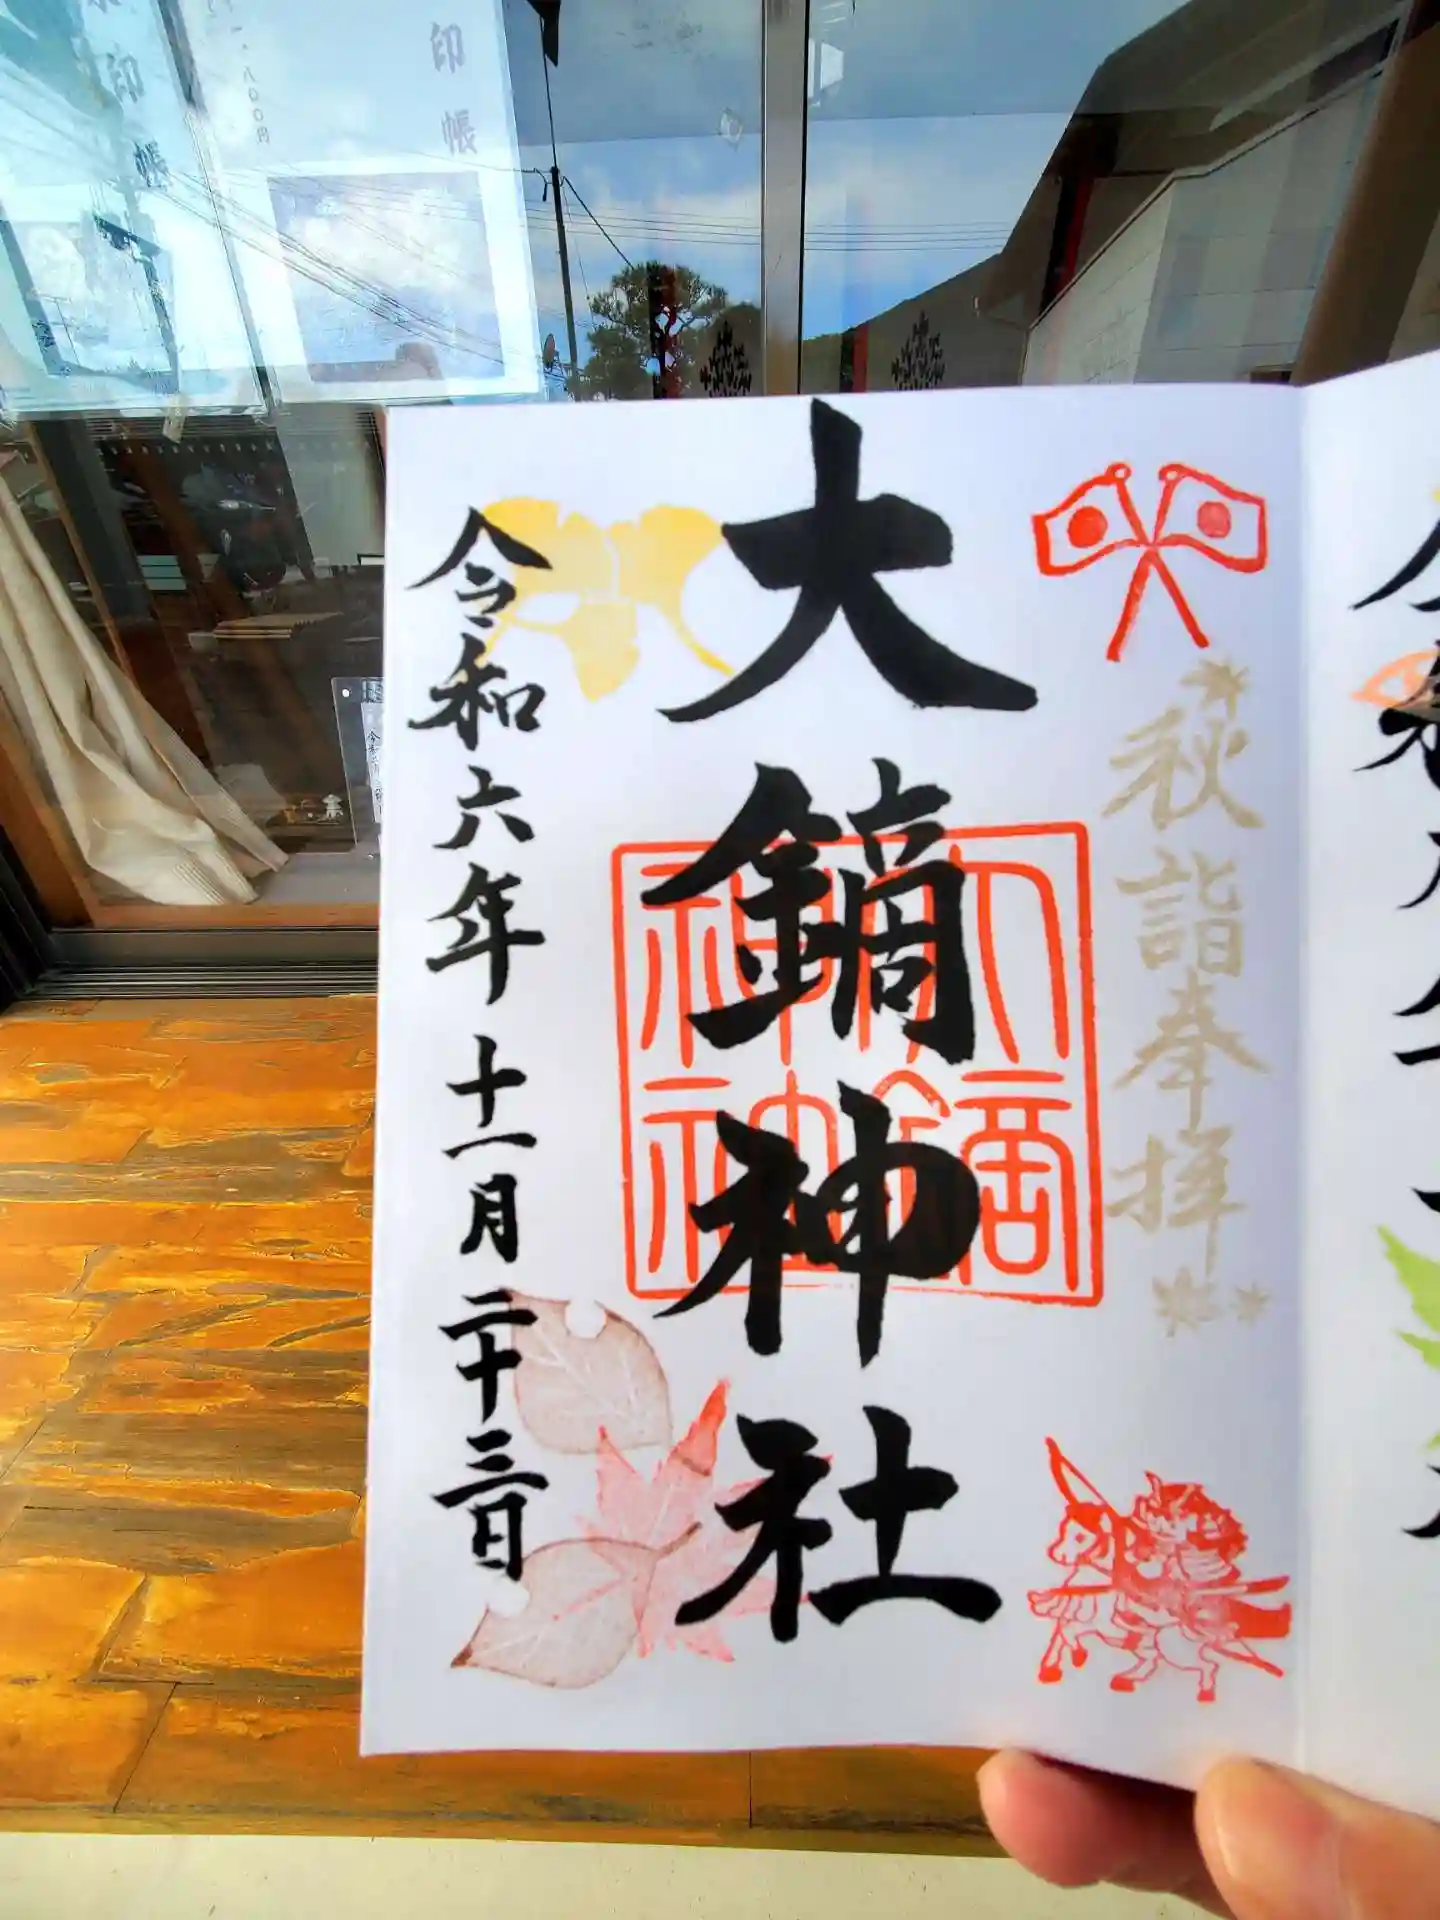 秋詣奉拝
大鏑神社
大鏑神社
令和六年十一月二十三日
印帳
印帳